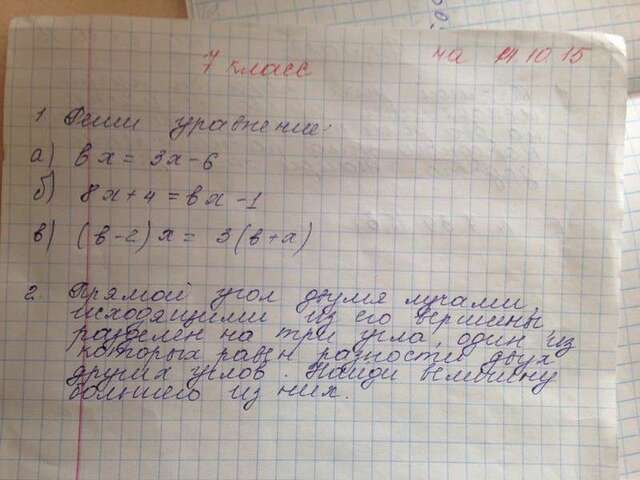 7 класс на 14 10 15
1. Реши уравнение:
а) вх = 3х - 6
б) 8х + 4 = вх - 1
в) (в - 2) х = 3 (в + х)
2. Прямой угол двумя лучами,
исходящими из его вершины
разделен на три угла, один из
которых равен разности двух
других углов. Найди величину
большего из них.